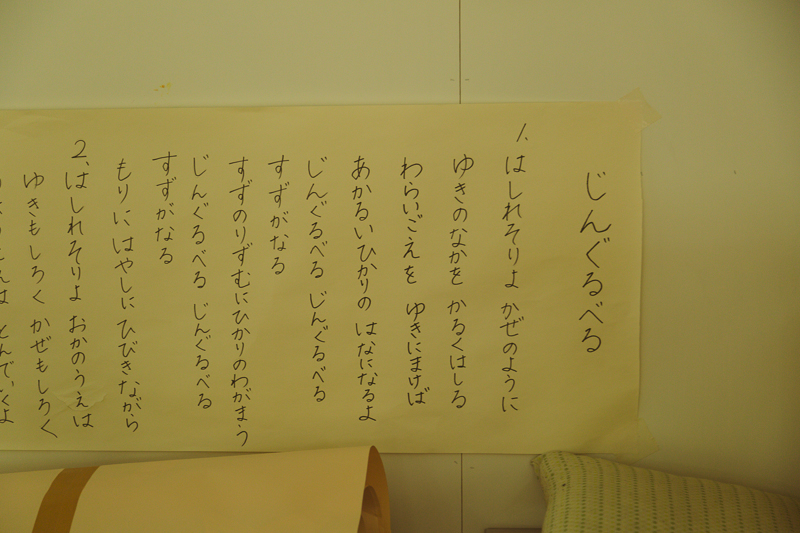 じんぐるべる
1. はしれそりよ かぜのように
ゆきのなかを かるくはしる
わらいごえを ゆきにまけば
あかるいひかりの はなになるよ
じんぐるべる じんぐるべる
すずがなる
すずのりずむにひかりのわがまう
じんぐるべる じんぐるべる
すずがなる
もりに はやしに ひびきながら
2. はしれそりよ おかのうえは
ゆきもしろく かぜもしろく